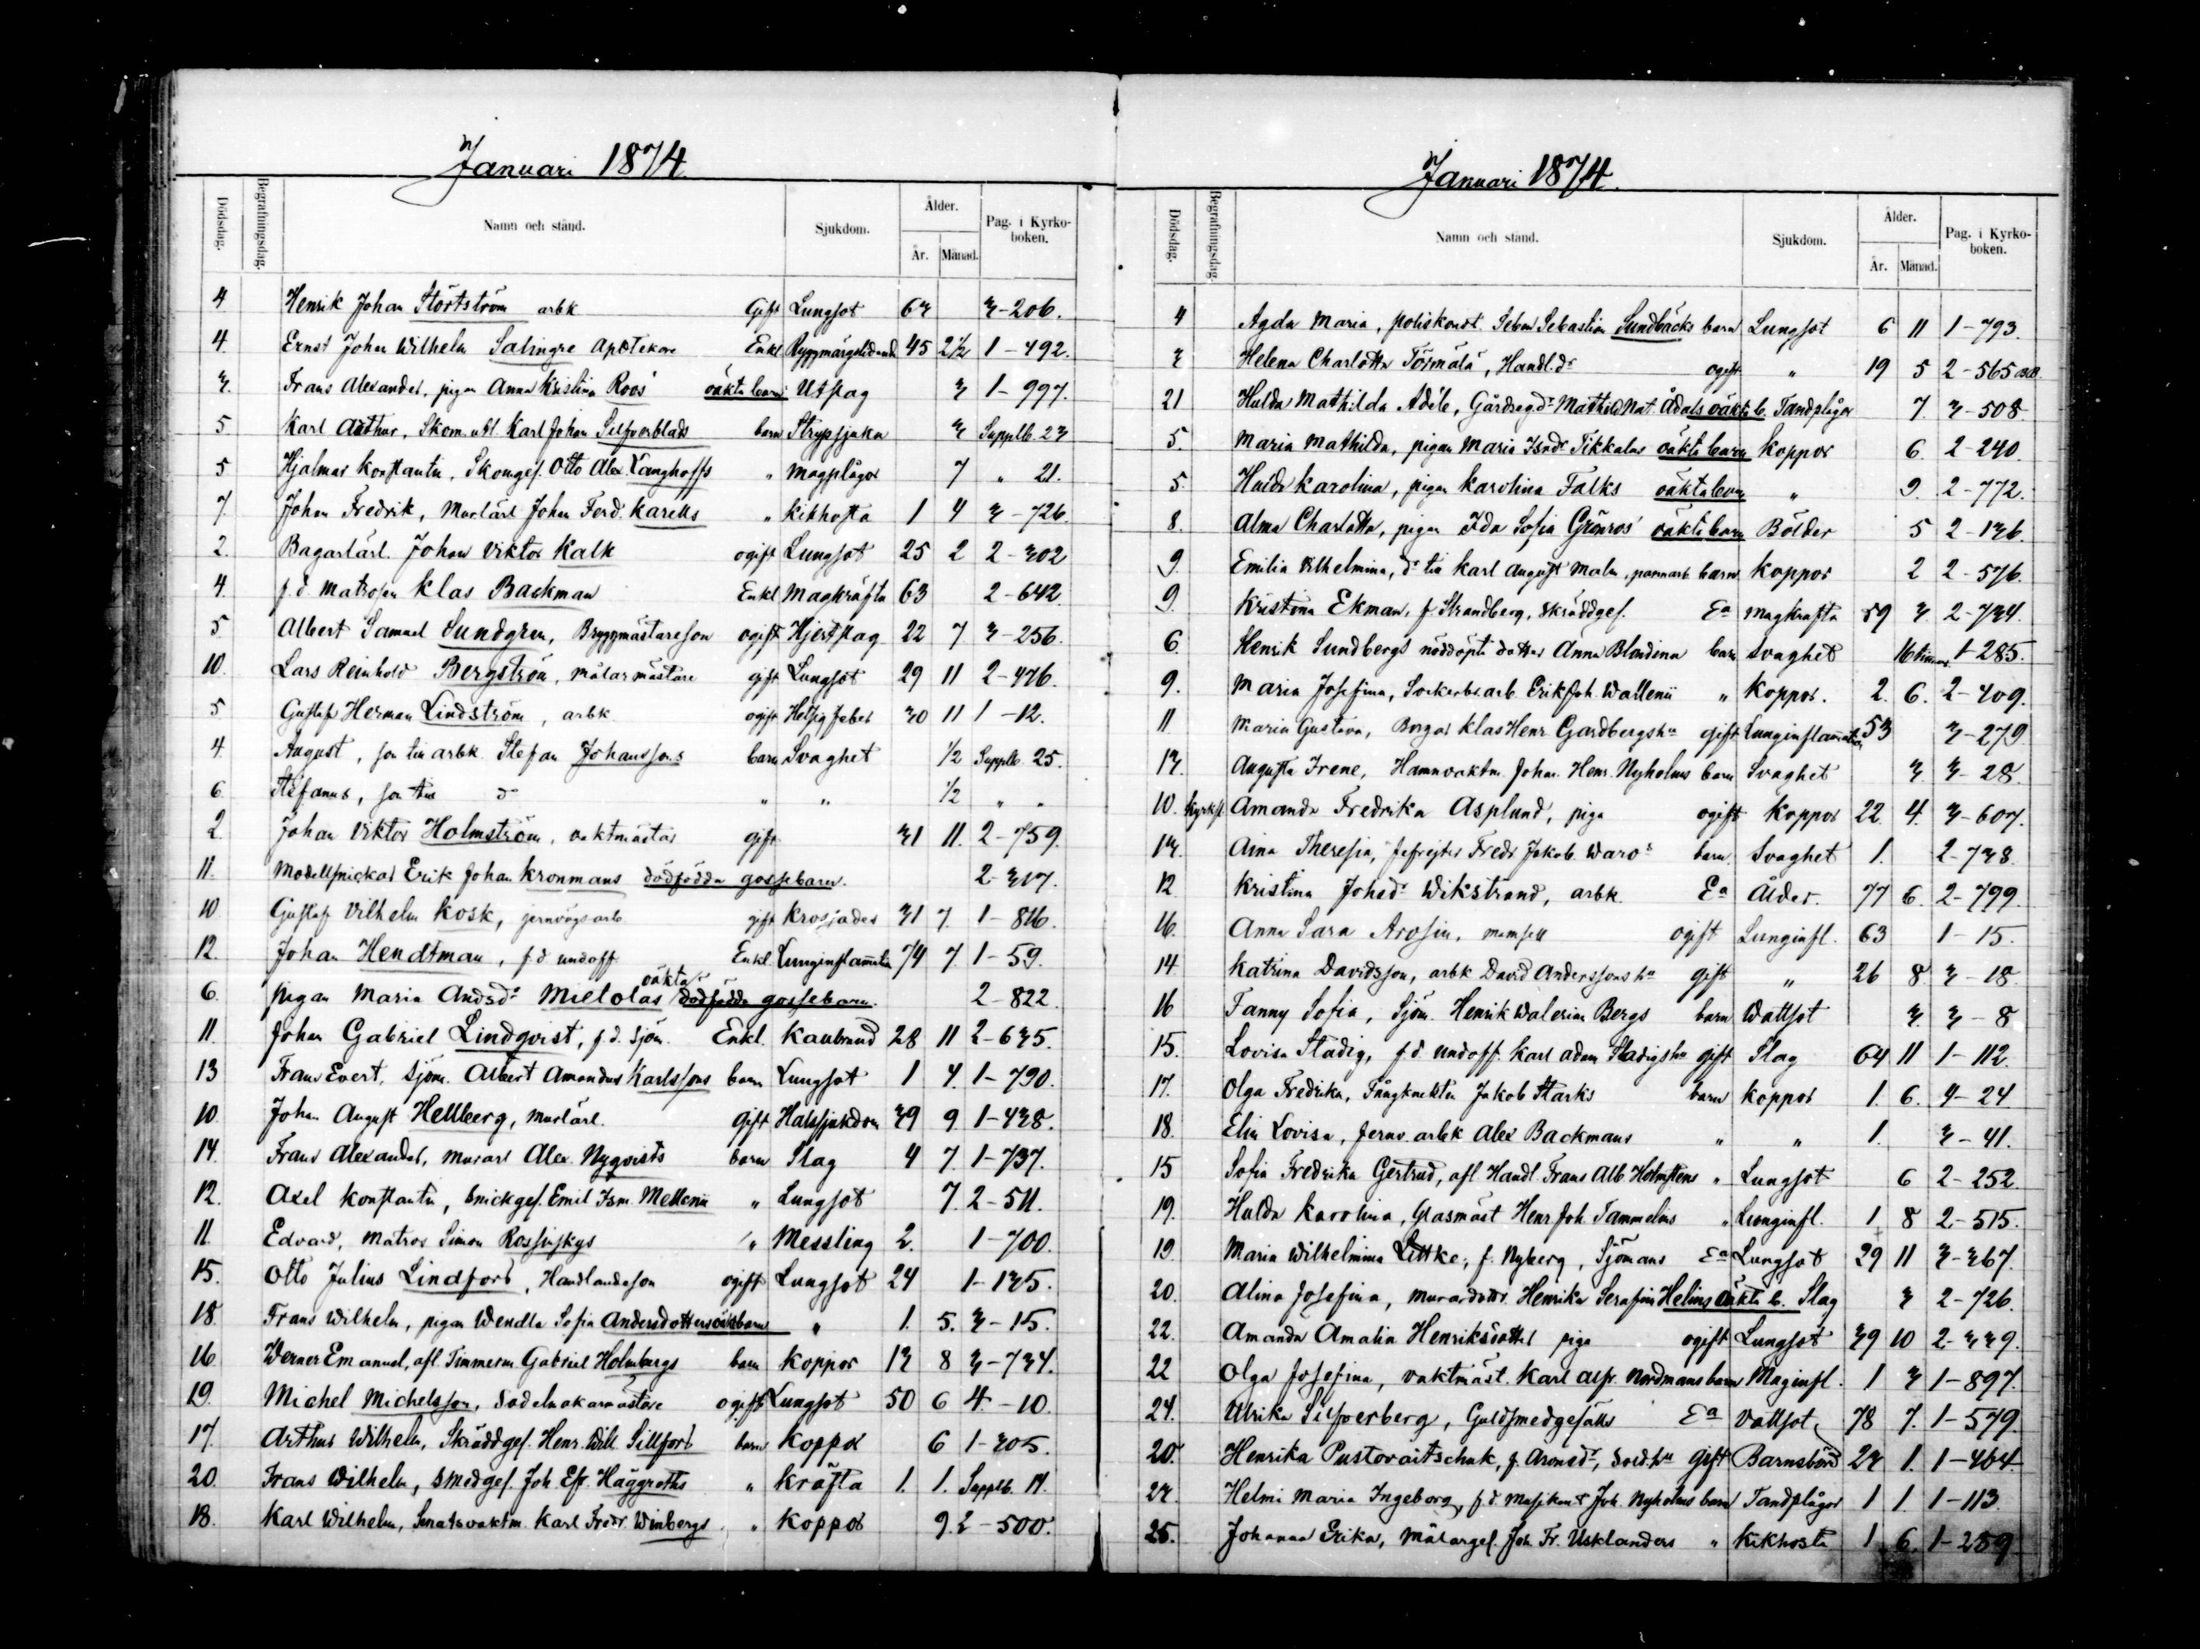 Januari 1874
Dödsdag. Begrafningsdag. Namn och stånd. Sjukdom. Ålder. År. Månad. Pag. i Kyrko-boken.
4 Henrik Johan Störtström arbk Gift Lungsot 63 3-206.
4. Ernst Johan Wilhelm Salingre Apotekare Enkl Ryggmärgslidande 45 2½ 1-492.
3. Frans Alexander, pigan Anna Kristina Roos' oäkta barn Utslag 3 1-997.
5 Karl Arthur, Skom. Karl Johan Silfverblads barn Strypsjuka 3 Supplb. 23
5 Hjalmar Konstantin, Skomgef. Otto Alex Langhoffs " Magplågor 7 " 21.
7. Johan Fredrik, Murlärl Johan Ferd. Karells " Kikhosta 1 4 3-726.
2. Bagarlärl. Johan Viktor Kalk ogift Lungsot 25 2 2-302
4. f.d. Matrosen Klas Backman Enkl Magkräfta 63 2-642
5 Albert Samuel Sundgren, Byggmästareson ogift Hjertslag 22 7 3-256.
10. Lars Reinhold Bergström, målarmästare gift Lungsot 29 11 2-476.
5 Gustaf Herman Lindström, arbk ogift Hetsig feber 30 11 1-12.
4. August, son till arbk. Stefan Johanssons barn Svaghet ½ Supplb. 25.
6 Stefanus, son till do " " ½ " "
2. Johan Viktor Holmström, vaktmästar gift 31 11. 2-759.
11. Modellsnickar Erik Johan Kronmans dödfödda gossebarn. 2-317.
10 Gustaf Vilhelm Kosk, jernvägsarb gift 31 7. 1-816.
12. Johan Hendtman, f.d undoff Enkl. Lunginflammation 74 7. 1-59.
6. pigan Maria Andsdr Mielolas oäkta dödfödda gossebarn. 2-822
11. Johan Gabriel Lindqvist, f.d. Sjöm. Enkl. Kallbrand 28 11 2-635.
13 Frans Evert, Sjöm. Albert Amandus Karlssons barn Lungsot 1 4. 1-790.
10 Johan August Hellberg, murlärl. gift Halssjukdom 39 9. 1-438.
14. Frans Alexander, murarl Alex. Nyqvists barn Slag 4 7. 1-737.
12. Axel Konstantin, Snickgef. Emil Ism. Mellenii " Lungsot 7. 2-511.
11. Edvard, Matros Simon Rossinskys " Messling 2. 1-700.
15. Otto Julius Lindfors, Handlandeson ogift Lungsot 24 1-135.
18. Frans Wilhelm, pigan Wendla Sofia Andersdotters oäkta barn " 1. 5. 3-15.
16 Werner Emanuel, afl. Timmerm Gabriel Holmbergs barn Koppor 13 8 3-734.
19. Michel Michelsson, Sadelmakarmästare ogift Lungsot 50 6 4-10.
17. Arthur Wilhelm, Skräddgef. Henr. Will. Sillfors barn Koppor 6 1-305.
20. Frans Wilhelm, Smedgef. Joh Efr. Häggroths " Kräfta 1. 1. Supplb. 14.
18. Karl Wilhelm, Senatsvaktm. Karl Fredr. Winbergs " Koppor 9. 2-500.
Januari 1874.
Dödsdag. Begrafningsdag. Namn och stånd. Sjukdom. Ålder. År. Månad. Pag. i Kyrko-boken.
4 Agda Maria, poliskonst. Sebastian Sundbäcks barn Lungsot 6 11 1-793.
3 Helena Charlotta Törmälä, Handl.dr ogift " 19 5 2-565
21 Hulda Mathilda Adéle, Gårdsegdr Mathild Nat. Ådals oäkta b. Tandplågor 7. 3-508.
5. Maria Mathilda, pigan Maria Isrdr Tikkalas oäkta barn Koppor 6. 2-240.
5. Hulda Karolina, pigan Karolina Falks oäkta barn " 9. 2-772.
8. Alma Charlotta, pigan Ida Sofia Grönros' oäkta barn Bölder 5 2-136.
9. Emilia Vilhelmina, dr till Karl August Malm, barn Koppor 2 2-576.
9. Kristina Ekman, f. Strandberg, Skräddgef. Ea Magkräfta 59 3 2-734.
6. Henrik Sundbergs nöddöpta dotter Anna Blondina barn Svaghet 16 timmar 1-285.
9. Maria Josefina, Sockerbr.arb. Erik Joh. Wallenii " Koppor. 2. 6. 2-409.
11 Maria Gustava, Borgar Klas Henr. Gardbergs hu gift Lunginflammation 53 3-279
13. Augusta Irene, Hamnvaktm. Johan Henr. Nyholms barn Svaghet 3. 3-28.
10. Kyrksl. Amanda Fredrika Asplund, piga ogift Koppor 22. 4. 3-607.
13. Aina Theresia, Gefrejter Fredr Jakob Waros barn. Svaghet 1. 2-738.
12 Kristina Johsdr Wikstrand, arbk. Ea Ålder. 77 6. 2-799.
16. Anna Sara Arosin, mamsell ogift Lunginfl. 63 1-15.
14. Katrina Davidsson, arbk David Anderssons hu gift " 26 8. 3-18.
16 Fanny Sofia, Sjöm. Henrik Walerian Bergs barn Wattsot 3. 3-8
15. Lovisa Stadig, f.d. undoff. Karl Adam Stadigs hu gift Slag 64 11 1-112.
17. Olga Fredrika, Fångknekten Jakob Starks barn Koppor 1. 6. 4-24.
18. Elin Lovisa, Jernv. arbk Alex Backmans " " 1. 3-41.
15 Sofia Fredrika Gertrud, afl. Handl. Frans Alb. Holmstens " Lungsot 6 2-252.
19. Hulda Karolina, Glasmäst Henr Joh. Tammelins " Lunginfl. 1 8 2-515.
19 Maria Wilhelmina Littke, f. Nyberg, Sjömans Ea Lungsot 29 11 3-367.
20. Alina Josefina, murardottr. Henrika Serafina Helins oäkta b. Slag 3 2-726.
22. Amanda Amalia Henriksdotter piga ogift Lungsot 39 10 2-339.
22 Olga Josefina, vaktmäst. Karl Alfr. Nordmans barn Maginfl. 1 3 1-897.
24. Ulrika Silfverberg, Guldsmedgesälls Ea Vattsot 78 7. 1-579.
20. Henrika Pustovaitschuk, f. Aronsdr, Sold.hu gift Barnsbörd 23 1. 1-464.
23. Helmi Maria Ingeborg, f.d. Musikant Joh. Nyholms barn Tandplågor 1 1. 1-113.
25. Johanna Erika, Målargef. Joh. Fr. Usklanders " Kikhosta 1 6. 1-259.